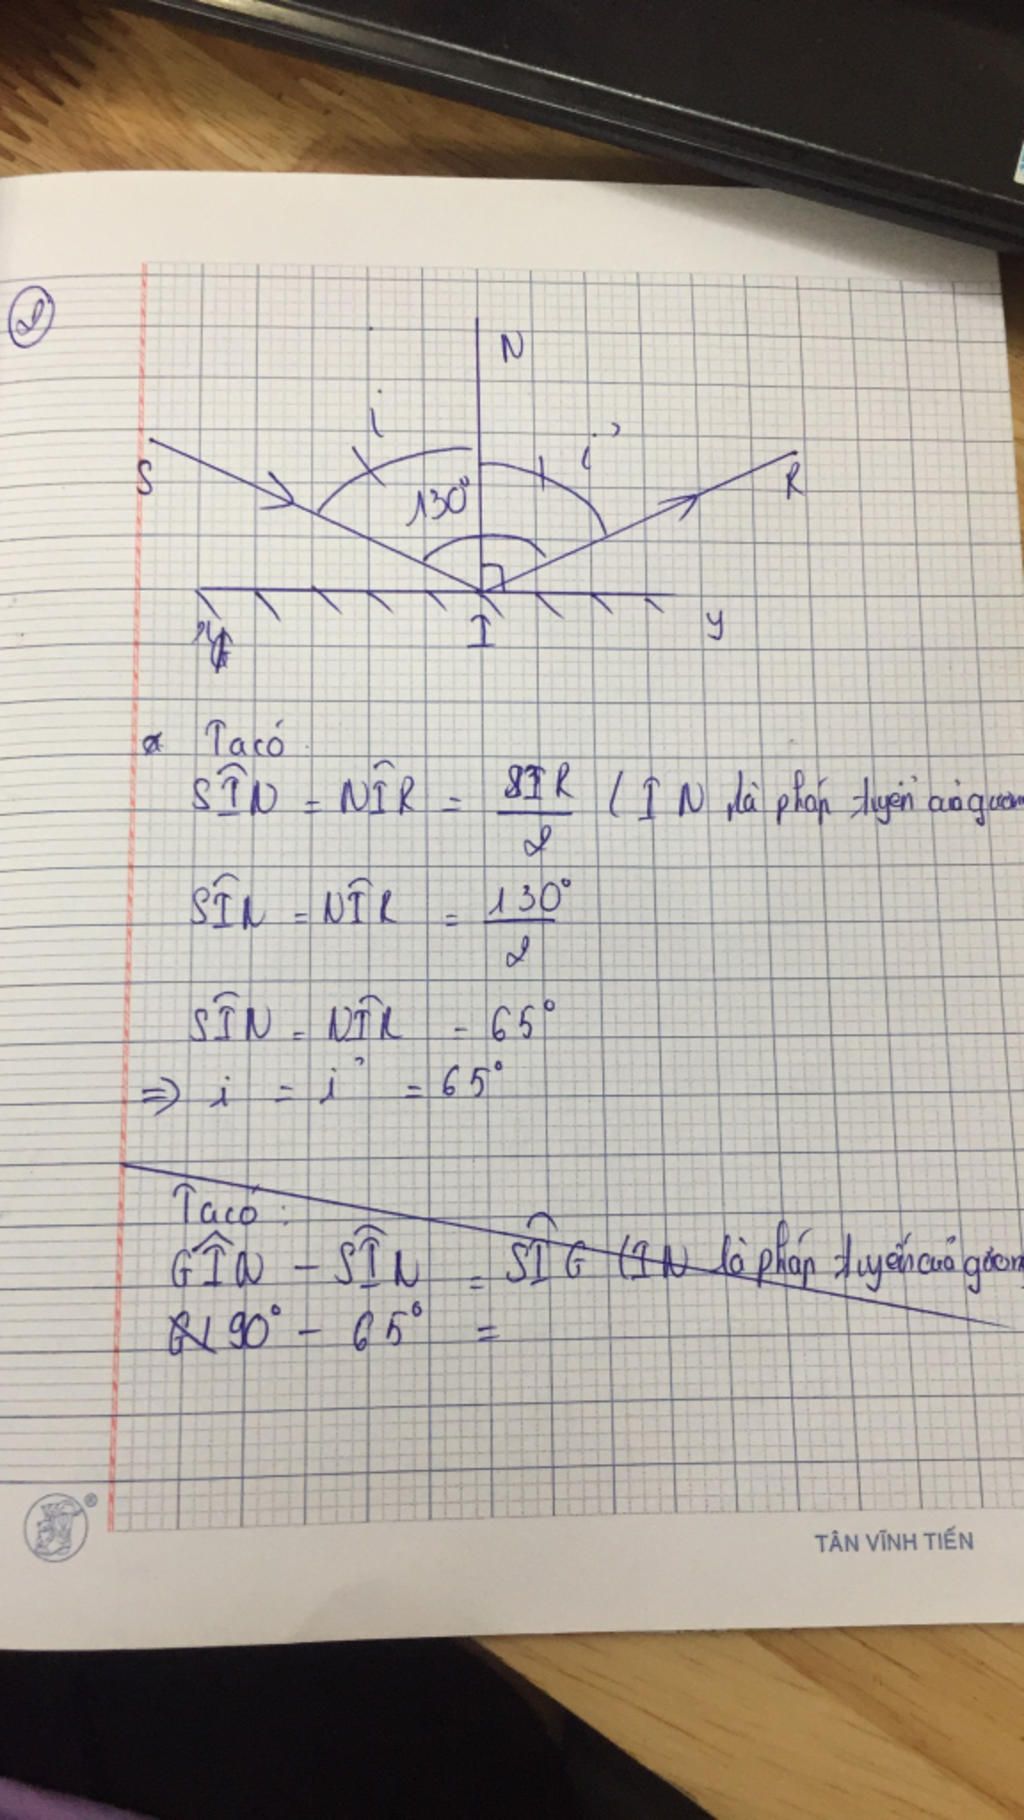 2
N
i
i'
S
130°
R
I
y
Ta có
SÎN = NÎR = SIR / 2 (IN là pháp tuyến của gươn
SÎN = NÎR = 130° / 2
SÎN = NÎR = 65°
⇒ i = i' = 65°
Ta có:
GÎN - SÎN = SÎG (IN là pháp tuyến của gươn
90° - 65° =
®
TÂN VĨNH TIẾN